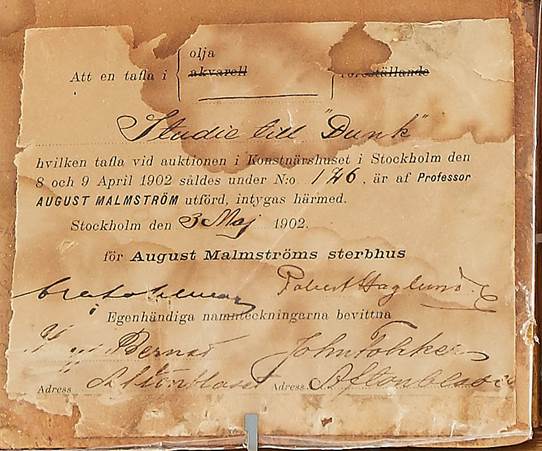 olja
Att en tafla i akvarell föreställande
Studie till "Dunk"
hvilken tafla vid auktionen i Konstnärshuset i Stockholm den
8 och 9 April 1902 såldes under N:o 126, är af Professor
AUGUST MALMSTRÖM utförd, intygas härmed.
Stockholm den 3 Maj 1902.
för August Malmströms sterbhus
Robert Haglund
Egenhändiga namnteckningarna bevittna
John
Adress Aftonbladet Adress Aftonbladet